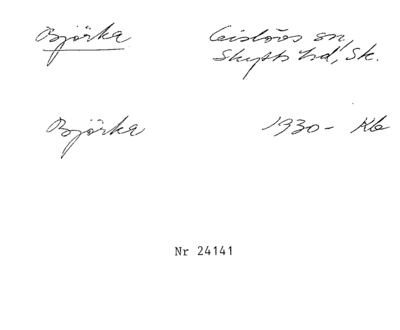 Björka Gislövs sn,
Skytts hd, Sk.
Björka 1930- Kb
Nr 24141